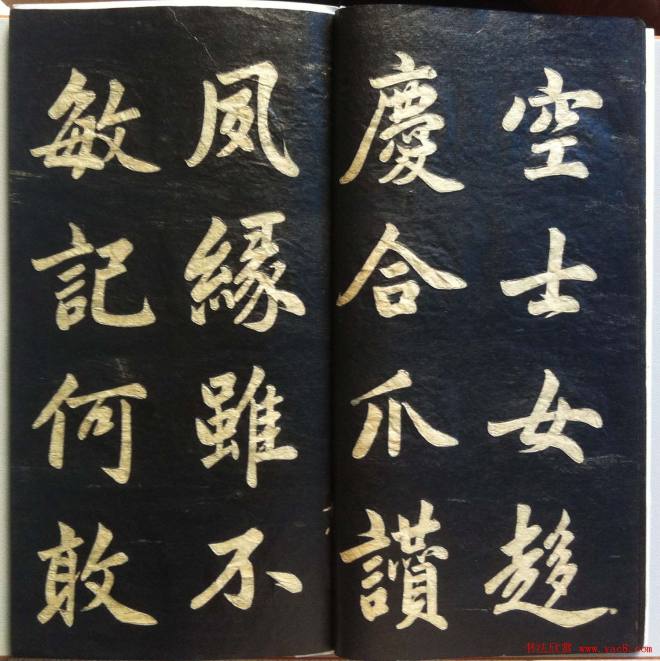 空士女趍
慶合爪讚
夙緣雖不
敏記何敢
书法欣赏 www.yac8.com